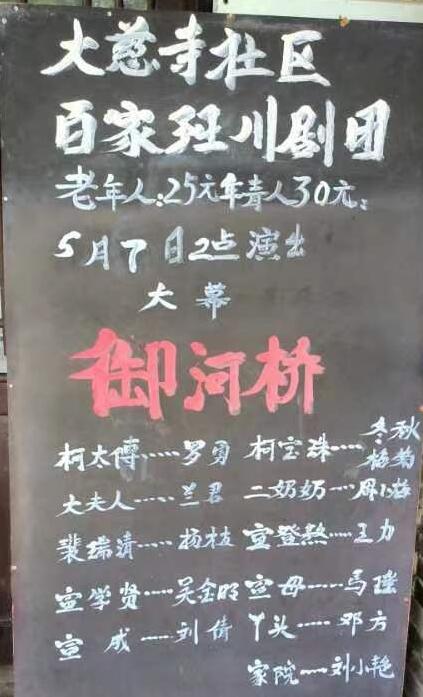 大慈寺社区
百家班川剧团
老年人:25元年青人30元:
5月7日2点演出
大幕
御河桥
柯太傅……罗勇 柯宝珠……冬梅 秋菊
大夫人……兰君 二奶奶……周小梅
裴瑞清……杨枝 宣登熬……王力
宣学贤……吴金明 宣母……马瑾
宣成……刘倩 丫头……邓方
家院……刘小艳